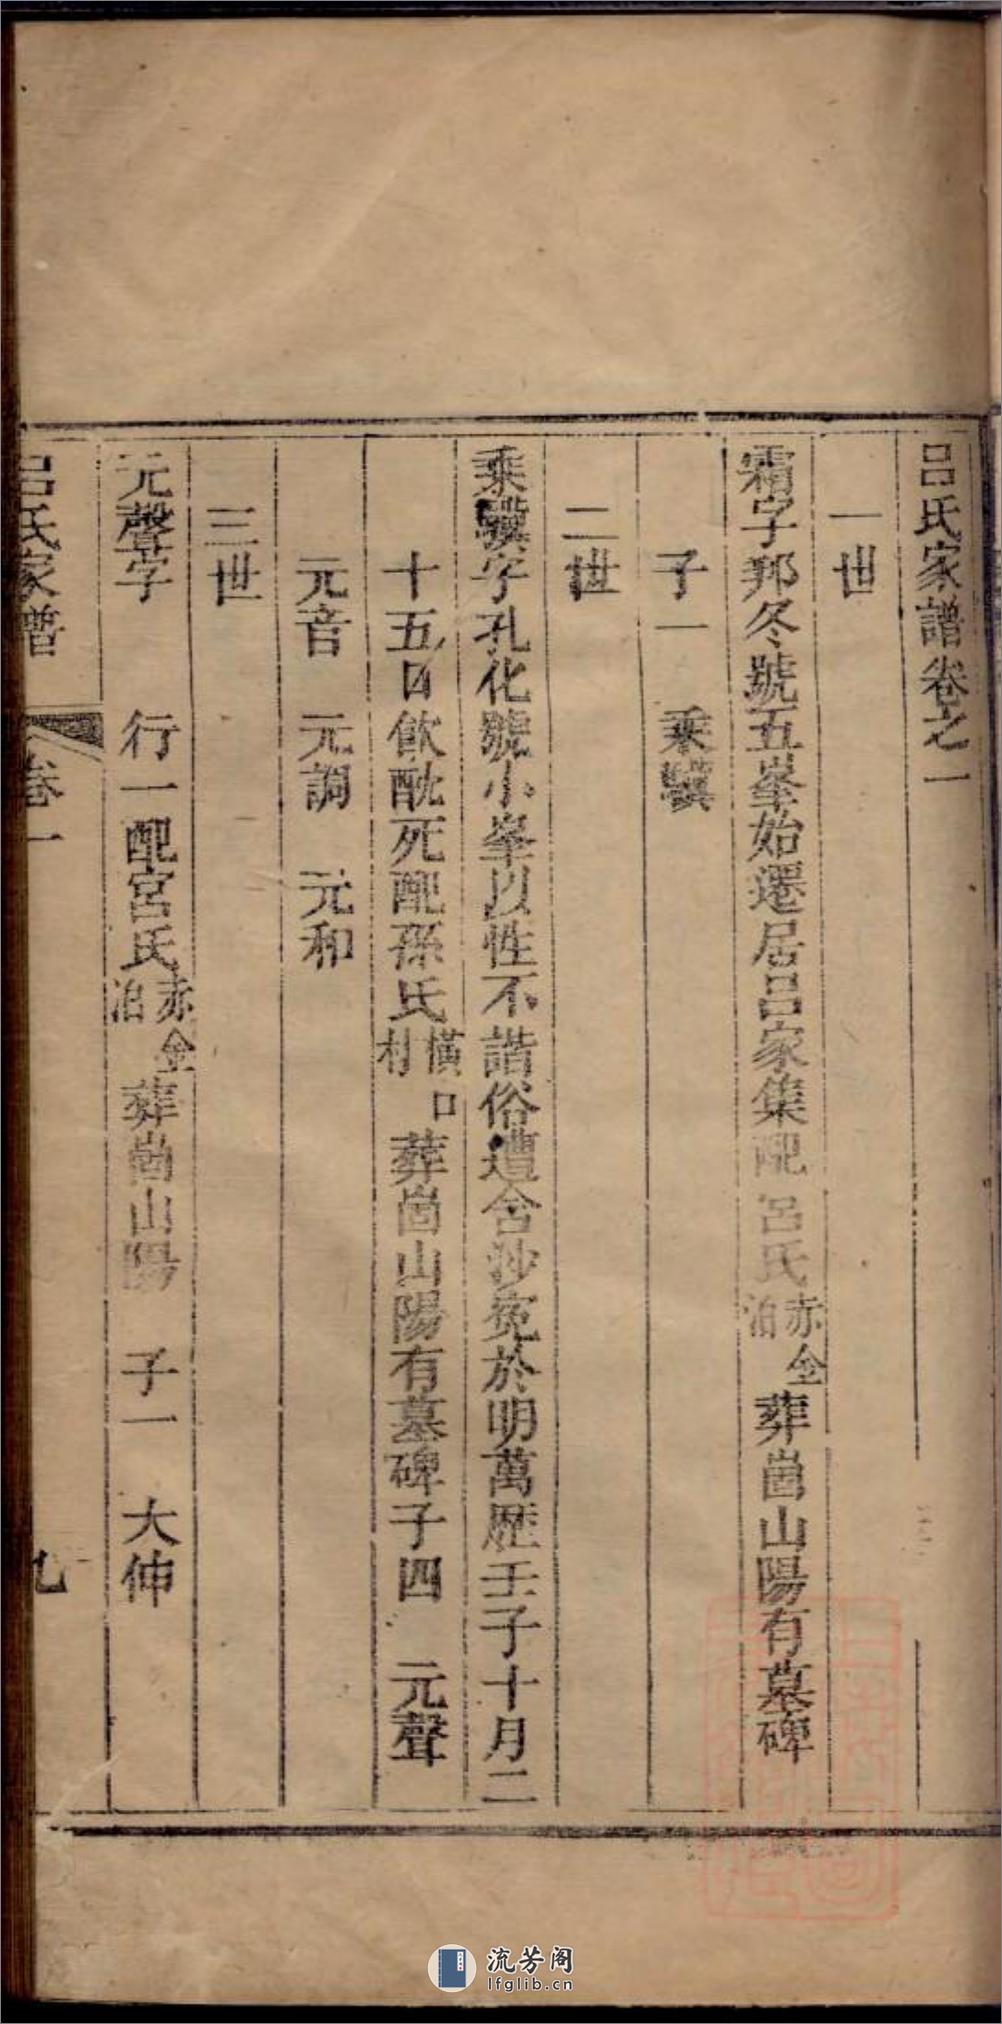 呂氏家譜卷之一
一世
霜字邦冬號五峯始遷居呂家集配呂氏赤金泊葬崮山陽有墓碑
子一 乘驥
二世
乘驥字孔化號小峯以性不諧俗遭含沙寃於明萬歴壬子十月二
十五日飲酖死配孫氏橫口村葬崮山陽有墓碑子四 元聲
元音 元調 元和
三世
元聲字 行一配宮氏赤金泊葬崮山陽 子一 大伸
呂氏家譜 卷一 九
流芳阁
lfglib.cn